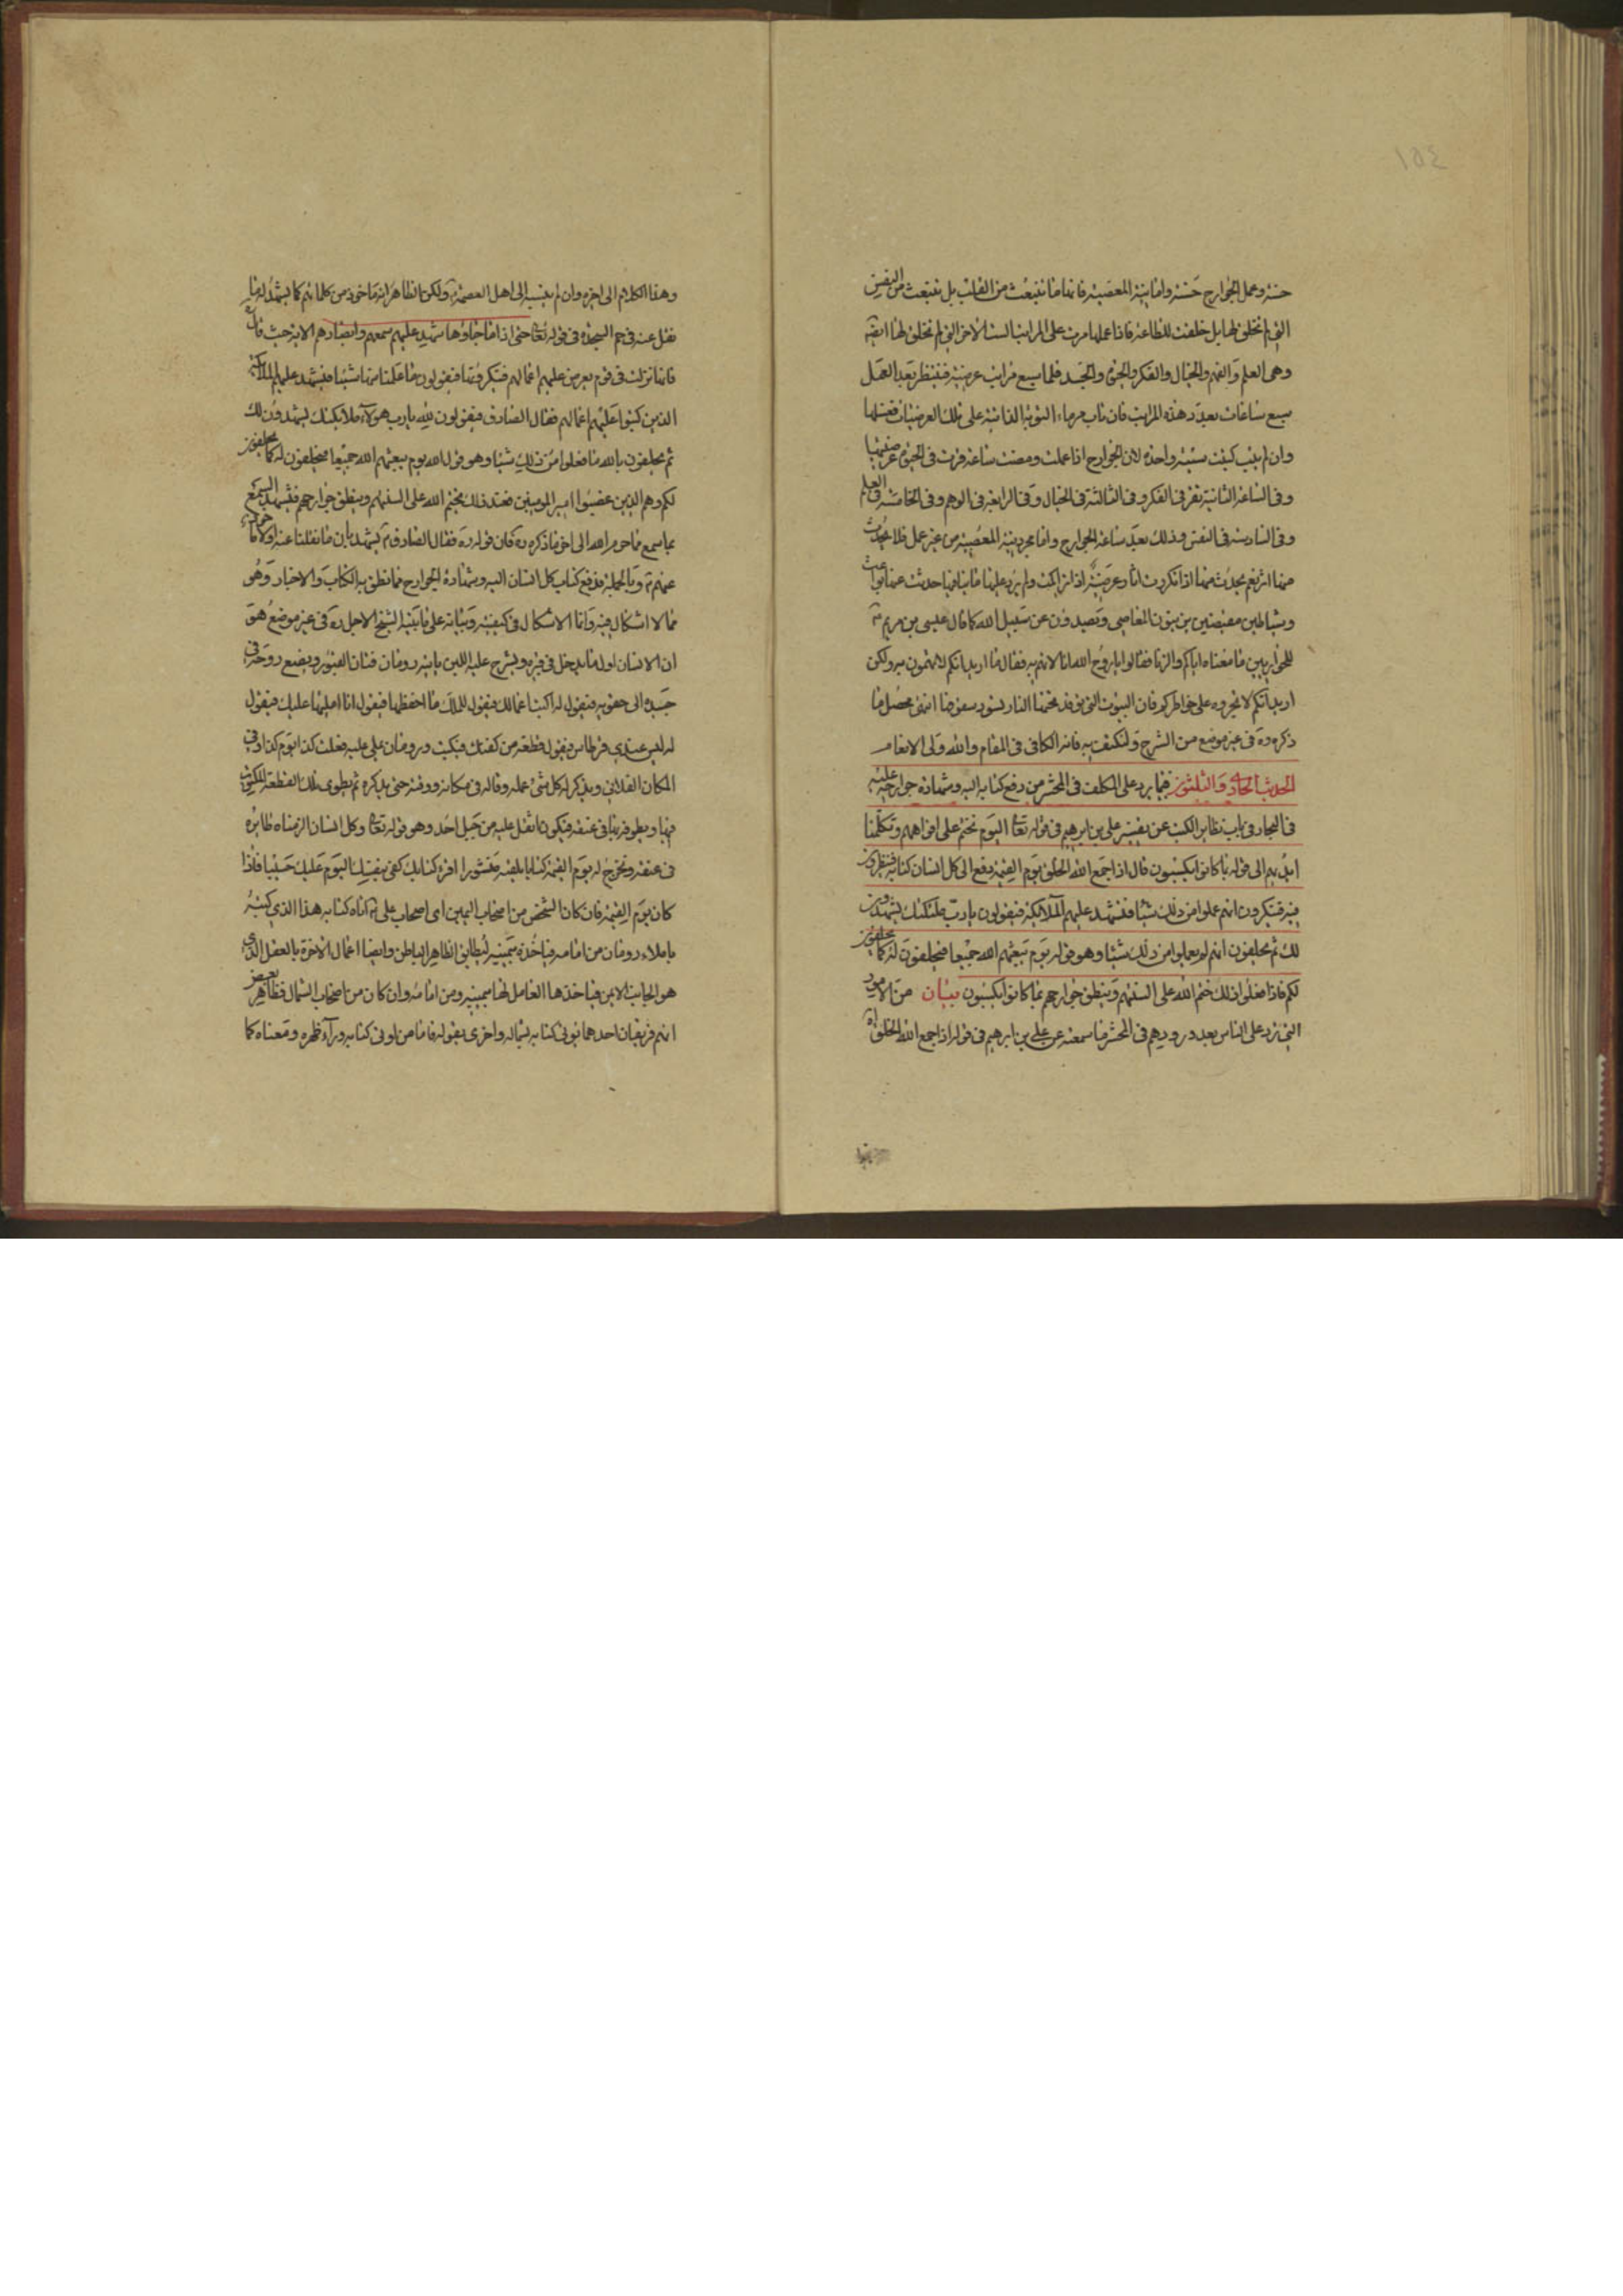 ١٥٤
حسنة وعمل الجوارح حسنة واما نية المعصية فانها ما تنبعث من القلب بل تنبعث من النفس
التي لم تخلق لها بل خلقت للطاعة فاذا عملها مرت على المراتب الست الاخر التي لم تخلق لها ايضا
وهي العلم والوهم والخيال والفكر والحيوة والجسد فلها سبع مراتب عرضية فينتظر بعد العمل
سبع ساعات بعدد هذه المراتب فان تاب محا ماء التوبة الذاتية على تلك العرضيات فغسلها
وان لم يتب كتبت سيئة واحدة لان الجوارح اذا عملت ومضت ساعة قرت في الحيوة عرضيتها
وفي الساعة الثانية تقر في الفكر وفي الثالثة في الخيال وفي الرابعة في الوهم وفي الخامسة في العلم
وفي السادسة في النفس وذلك بعد ساعة الجوارح واما مجرد نية المعصية من غير عمل فلا يحدث
منها اثر نعم يحدث منها اذا تكررت اثار عرضية اذا تراكمت ولم يرد عليها ما ينافيها حدثت عنها بواعث
وشياطين مقيضين يزينون المعاصي ويصدون عن سبيل الله كما قال عيسى بن مريم ع
للحواريين ما معناه اياكم والزنا فقالوا يا روح الله انا لا نهم به فقال ما اريد انكم لا تهمون به ولكن
اريد انكم لا تجروه على خواطركم فان البيوت التي توقد تحتها النار يسود سقوفها انتهى محصل ما
ذكره ره في غير موضع من الشرح ولنكتف به فانه الكافي في المقام والله ولي الانعام
الحديث الحادي والثلثون فيما يرد على المكلف في المحشر من دفع كتابه اليه وشهادة جوارحه عليه
في البحار في باب تطاير الكتب عن تفسير علي بن ابرهيم في قوله تعالى اليوم نختم على افواههم وتكلمنا
ايديهم الى قوله بما كانوا يكسبون قال اذا جمع الله الخلق يوم القيمة دفع الى كل انسان كتابه فينظرون
فيه فينكرون انهم عملوا من ذلك شيئا فتشهد عليهم الملائكة فيقولون يا رب ملئكتك يشهدون
لك ثم يحلفون انهم لم يعملوا من ذلك شيئا وهو قوله يوم يبعثهم الله جميعا فيحلفون له كما يحلفون
لكم فاذا فعلوا ذلك ختم الله على السنتهم وينطق جوارحهم بما كانوا يكسبون بيان من الامور
التي ترد على الناس بعد ورودهم في المحشر ما سمعته عن علي بن ابرهيم في قوله اذا جمع الله الخلق اه
وهذا الكلام الى اخره وان لم ينسبه الى اهل العصمة ع ولكن الظاهر انه ماخوذ من كلماتهم كما يشهد له ما
نقل عنه في حم السجدة في قوله تعالى حتى اذا ما جاؤها شهد عليهم سمعهم وابصارهم الاية حيث قال
فانها نزلت في قوم يعرض عليهم اعمالهم فينكرونها فيقولون ما عملنا منها شيئا فتشهد عليهم الملائكة
الذين كتبوا عليهم اعمالهم فقال الصادق فيقولون لله يا رب هؤلاء ملائكتك يشهدون لك
ثم يحلفون بالله ما فعلوا من ذلك شيئا وهو قول الله يوم يبعثهم الله جميعا فيحلفون له كما يحلفون
لكم وهم الذين غصبوا امير المؤمنين فعند ذلك يختم الله على السنتهم وينطق جوارحهم فيشهد السمع
بما سمع مما حرم الله الى اخر ما ذكره ره فان قوله ره فقال الصادق ع يشهد بان ما نقلنا عنه اولا
عنهم ع وبالجملة فدفع كتاب كل انسان اليه وشهادة الجوارح مما نطق به الكتاب والاخبار وهو
مما لا اشكال فيه وانما الاشكال في كيفيته وبيانه على ما بينه الشيخ الاجل ره في غير موضع هو
ان الانسان اول ما يدخل في قبره ويشرج عليه اللبن ياتيه رومان فتان القبور ويضع روحه في
جسده الى حقويه فيقول له اكتب اعمالك فيقول للملك ما احفظها فيقول انا امليها عليك فيقول
له ليس عندي قرطاس فيقول قطعة من كفنك فيكتب ورومان يملي عليه فعلت كذا يوم كذا وفي
المكان الفلاني ويذكر له كل شيء عمله وقاله في مكانه ووقته حتى يذكره ثم يطوي تلك القطعة المكتوب
فيها ويطوقه بها في عنقه فيكون اثقل عليه من جبل احد وهو قوله تعالى وكل انسان الزمناه طائره
في عنقه ونخرج له يوم القيمة كتابا يلقيه منشورا اقرء كتابك كفى بنفسك اليوم عليك حسيبا فاذا
كان يوم القيمة فان كان الشخص من اصحاب اليمين اي اصحاب علي ع اتاه كتابه هذا الذي كتبه
باملاء رومان من امامه فياخذه بيمينه ليطابق الظاهر الباطن وايضا اعمال الاخرة بالعقل الذي
هو الجانب الايمن فياخذها العامل لها بيمينه ومن امامه وان كان من اصحاب الشمال فظاهر بعض
انهم فريقان احدهما يؤتى كتابه بشماله واخرى بقوله فاما من اوتي كتابه وراء ظهره ومعناه كما